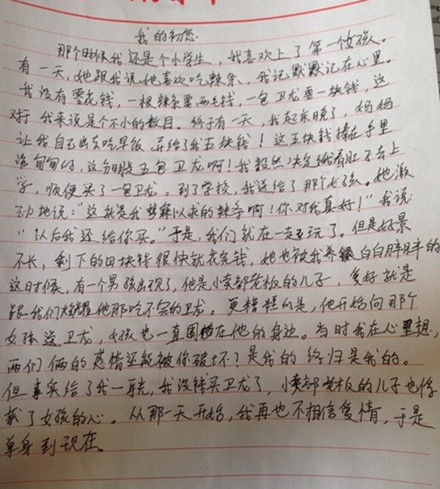 我的初恋
那个时候我还是个小学生，我喜欢上了第一个女孩。
有一天，她跟我说她喜欢吃辣条，我记默默记在心里。
我没有零花钱，一根辣条要两毛钱，一包卫龙要一块钱，这
对于我来说是个不小的数目。终于有一天，我起床晚了，妈妈
让我自己出去吃早饭，并给了我五块钱！这五块钱捧在手里
沉甸甸的，这分明是五包卫龙啊！我毅然决然饿着肚子去上
学，顺便买了一包卫龙，到了学校，我送给了那个女孩。她激
动地说："这就是我梦寐以求的辣条啊！你对我真好！"我说：
"以后我还给你买。"于是，我们就在一起玩了。但是好景
不长，剩下的四块钱很快就花完，她也被我养得白白胖胖的
这时候，有一个男孩出现了，他是小卖部老板的儿子，爱好就是
跟我们炫耀他那吃不完的卫龙。更糟糕的是，他开始向那个
女孩送卫龙，女孩也一直围在他的身边。当时我在心里想，
我们俩的感情还能被你破坏了？是我的终归是我的。
但事实给了我一耳光，我没钱买卫龙了，小卖部老板的儿子也俘
获了女孩的心。从那一天开始，我再也不相信爱情，于是
单身到现在。